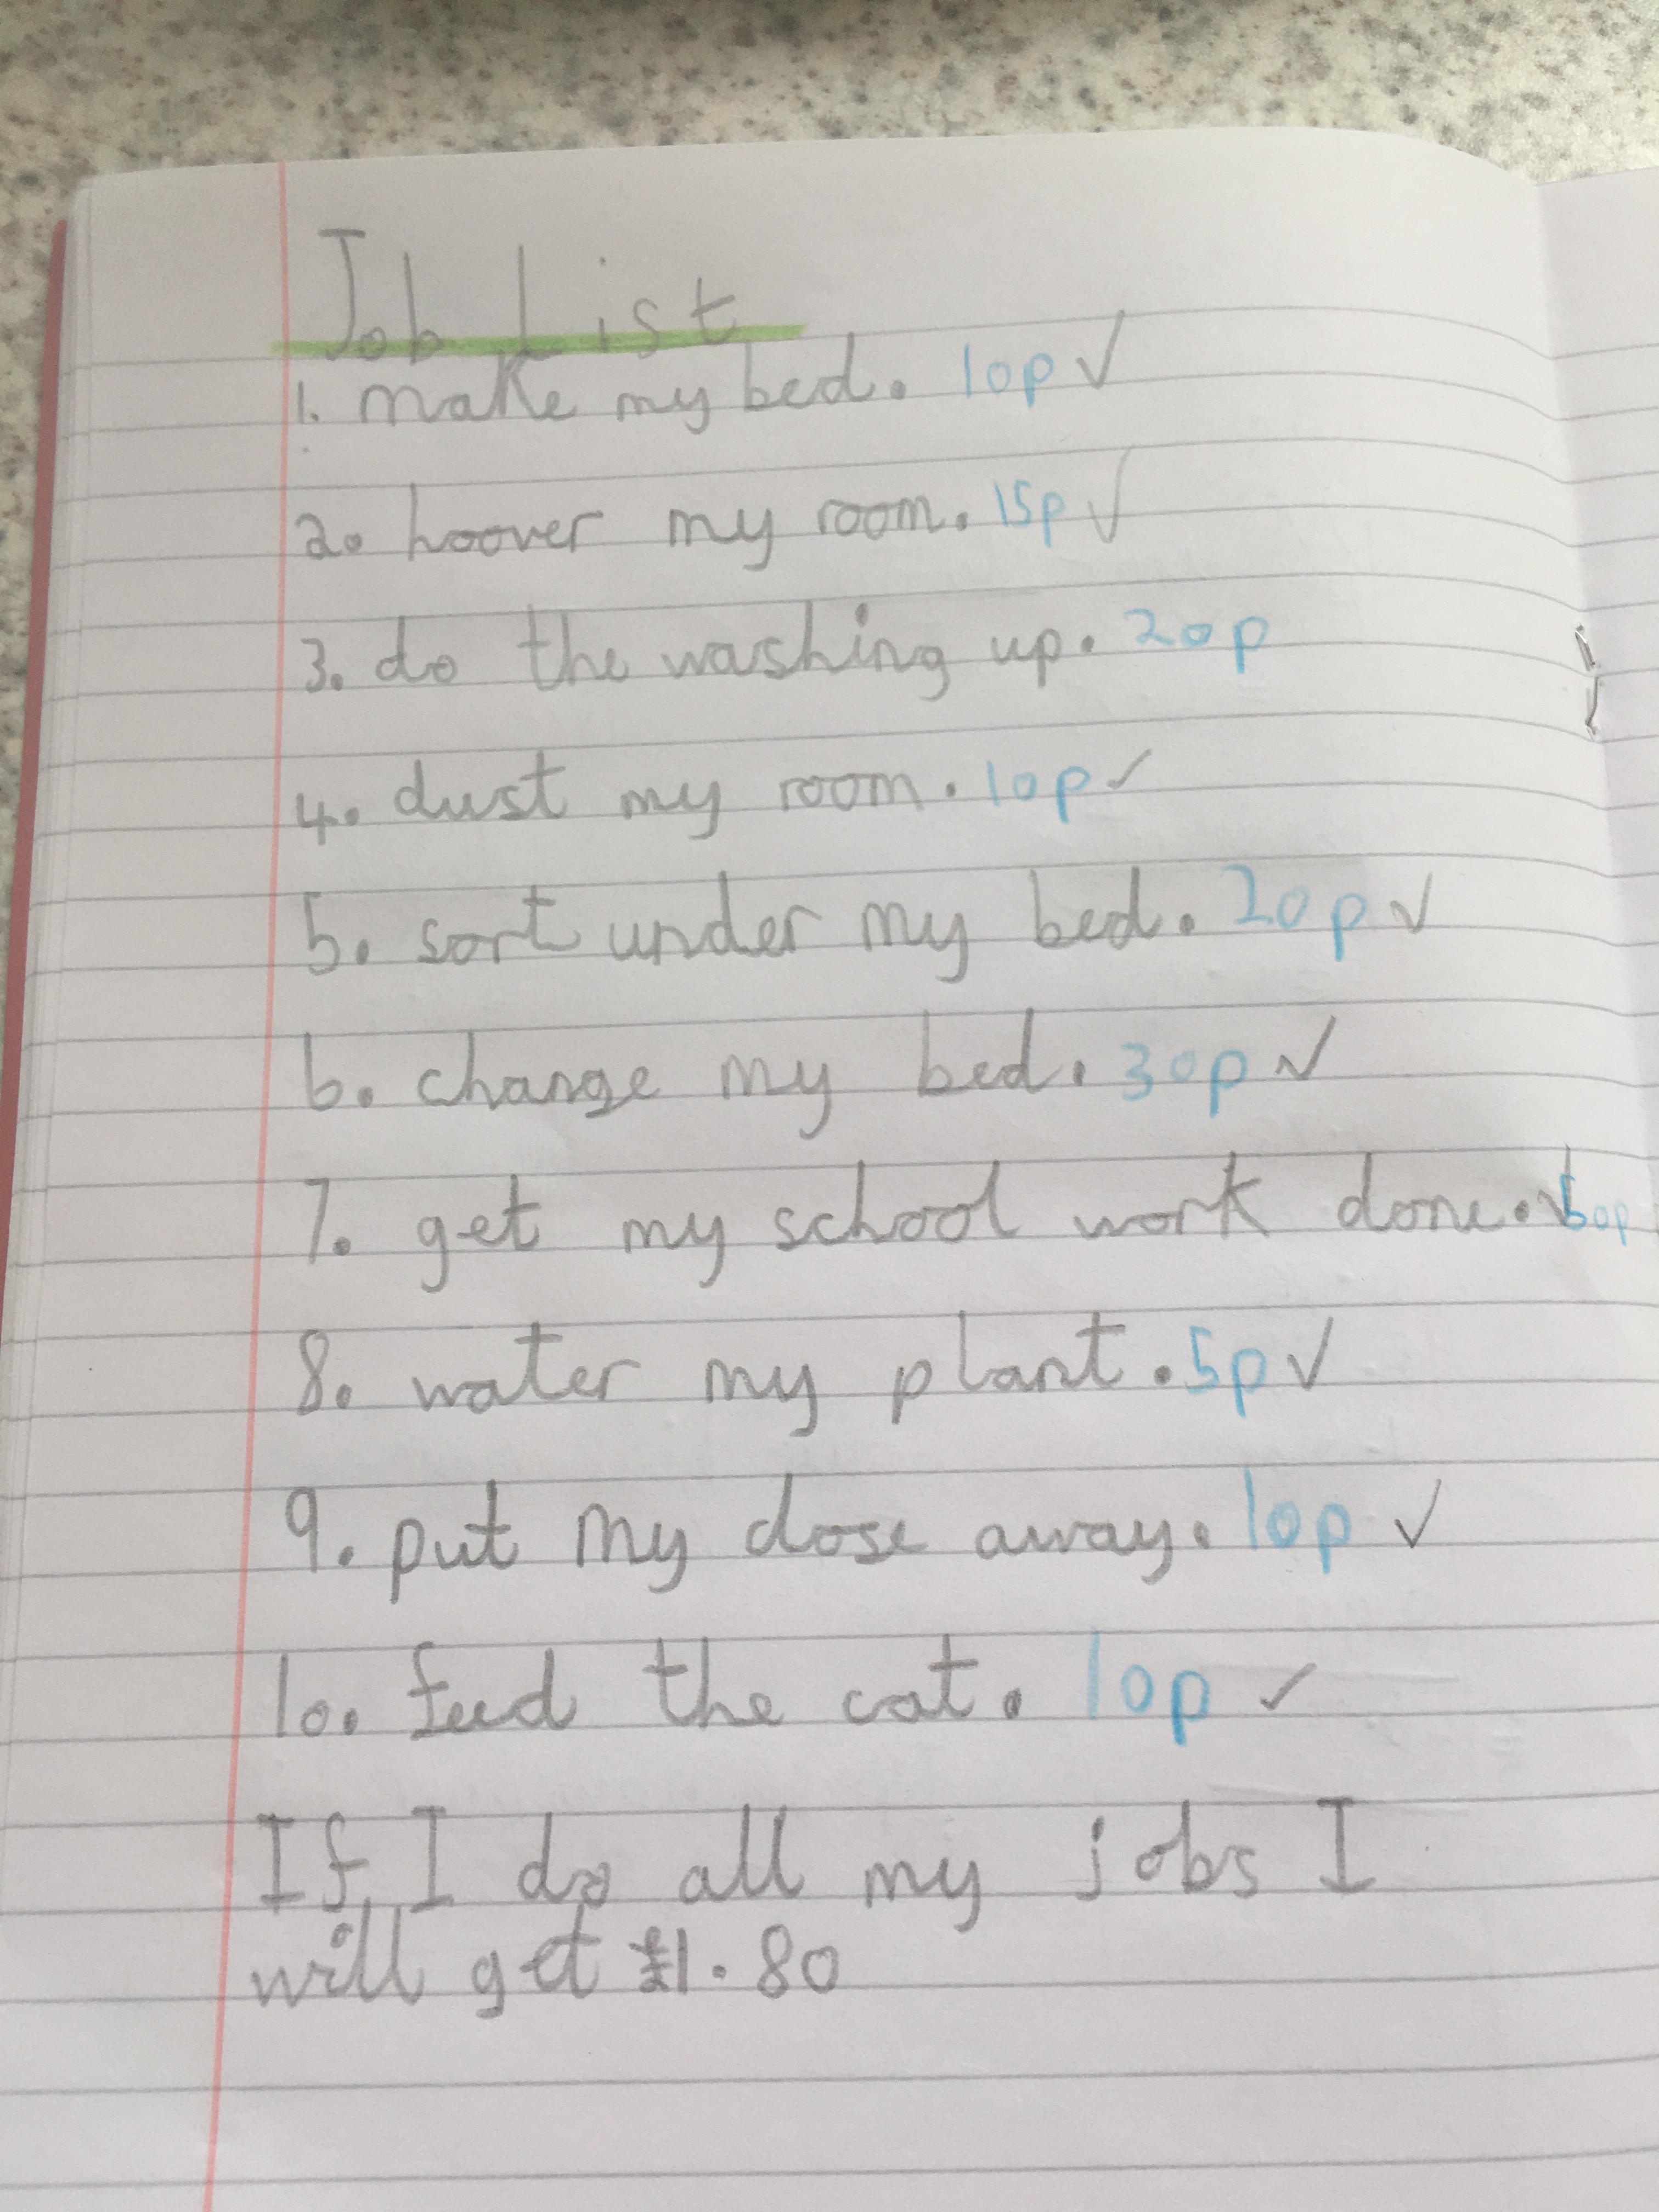 Job List
1. make my bed. 10p ✓
2. hoover my room. 15p ✓
3. do the washing up. 20p
4. dust my room. 10p ✓
5. sort under my bed. 20p ✓
6. change my bed. 30p ✓
7. get my school work done. ✓ 50p
8. water my plant. 5p ✓
9. put my close away. 10p ✓
10. feed the cat. 10p ✓
If I do all my jobs I
will get £1.80